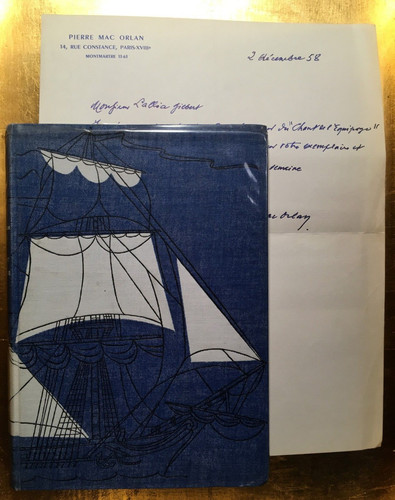 PIERRE MAC ORLAN
14, RUE CONSTANCE, PARIS-XVIIIe
MONTMARTRE 11-63
2 Décembre 58
Monsieur
du "Chant de l'Equipage"
votre exemplaire et
semaine
Mac Orlan